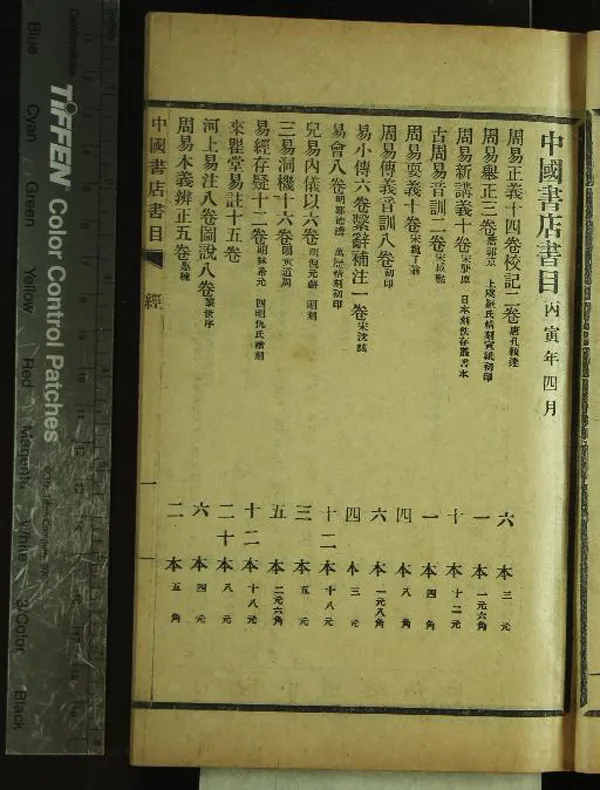 中國書店書目 丙寅年四月
周易正義十四卷校記二卷 唐孔穎達 六本 三元
周易舉正三卷 唐郭京 上虞羅氏精刻寅紙初印 一本 一元六角
周易新講義十卷 宋龔原 日本刻佚存叢書本 十本 十二元
古周易音訓二卷 一本 四角
周易要義十卷 宋魏了翁 四本 八角
周易傳義音訓八卷 初印 六本 一元八角
易小傳六卷繫辭補注一卷 宋沈該 四本 三元
易會八卷 明鄒德溥 萬曆精刻初印 十二本 十八元
兒易內儀以六卷 明倪元璐 明刻 三本 五元
三易洞機十六卷 五本 二元六角
易經存疑十二卷 明林希元 四明仇氏精刻 十二本 十八元
來瞿堂易註十五卷 二十本 八元
河上易注八卷圖說八卷 黎世序 六本 四元
周易本義辨正五卷 惠棟 二本 五角
中國書店書目 經 一
TIFFEN Color Control Patches
Blue Cyan Green Yellow Red Magenta White 3/Color Black
Centimetres